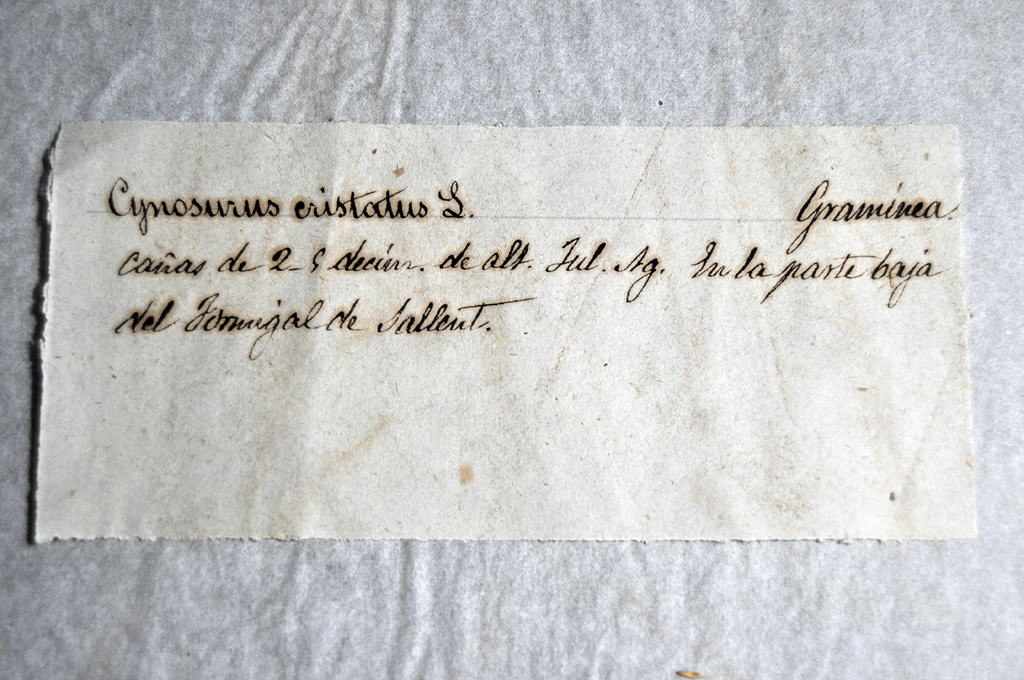 Cynosurus cristatus L. Gramínea.
cañas de 2-5 decím. de alt. Jul. Ag. En la parte baja
del Formigal de Sallent.